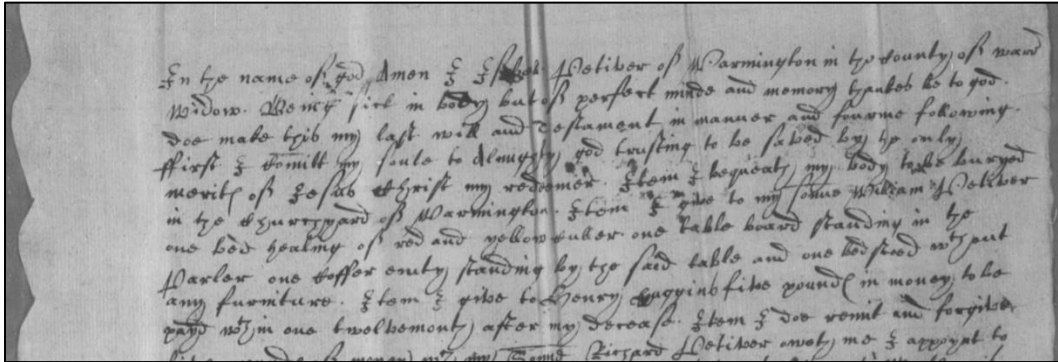 In the name of god Amen I Isabel Petiver of Warmington in the County of ward
widow. Being sick in body but of perfect minde and memory thankes be to god.
doe make this my last will and Testament in manner and fourme following.
ffirst I Comitt my soule to Almighty god trusting to be saved by the only
merits of Jesus Christ my redeemer. Item I bequeath my body to be buryed
in the Churchyard of Warmington. Item I give to my sonne William Petiver
one bed healing of red and yellow culler one table board standing in the
Parler one Coffer emty standing by the said table and one bedsteed wth out
any furniture. Item I give to Henry Huggins five pounds in money to be
payd wth in one twelvemonth after my decease. Item I doe remit and forgive
of money my Sonne Richard Petiver oweth me I appoynt to